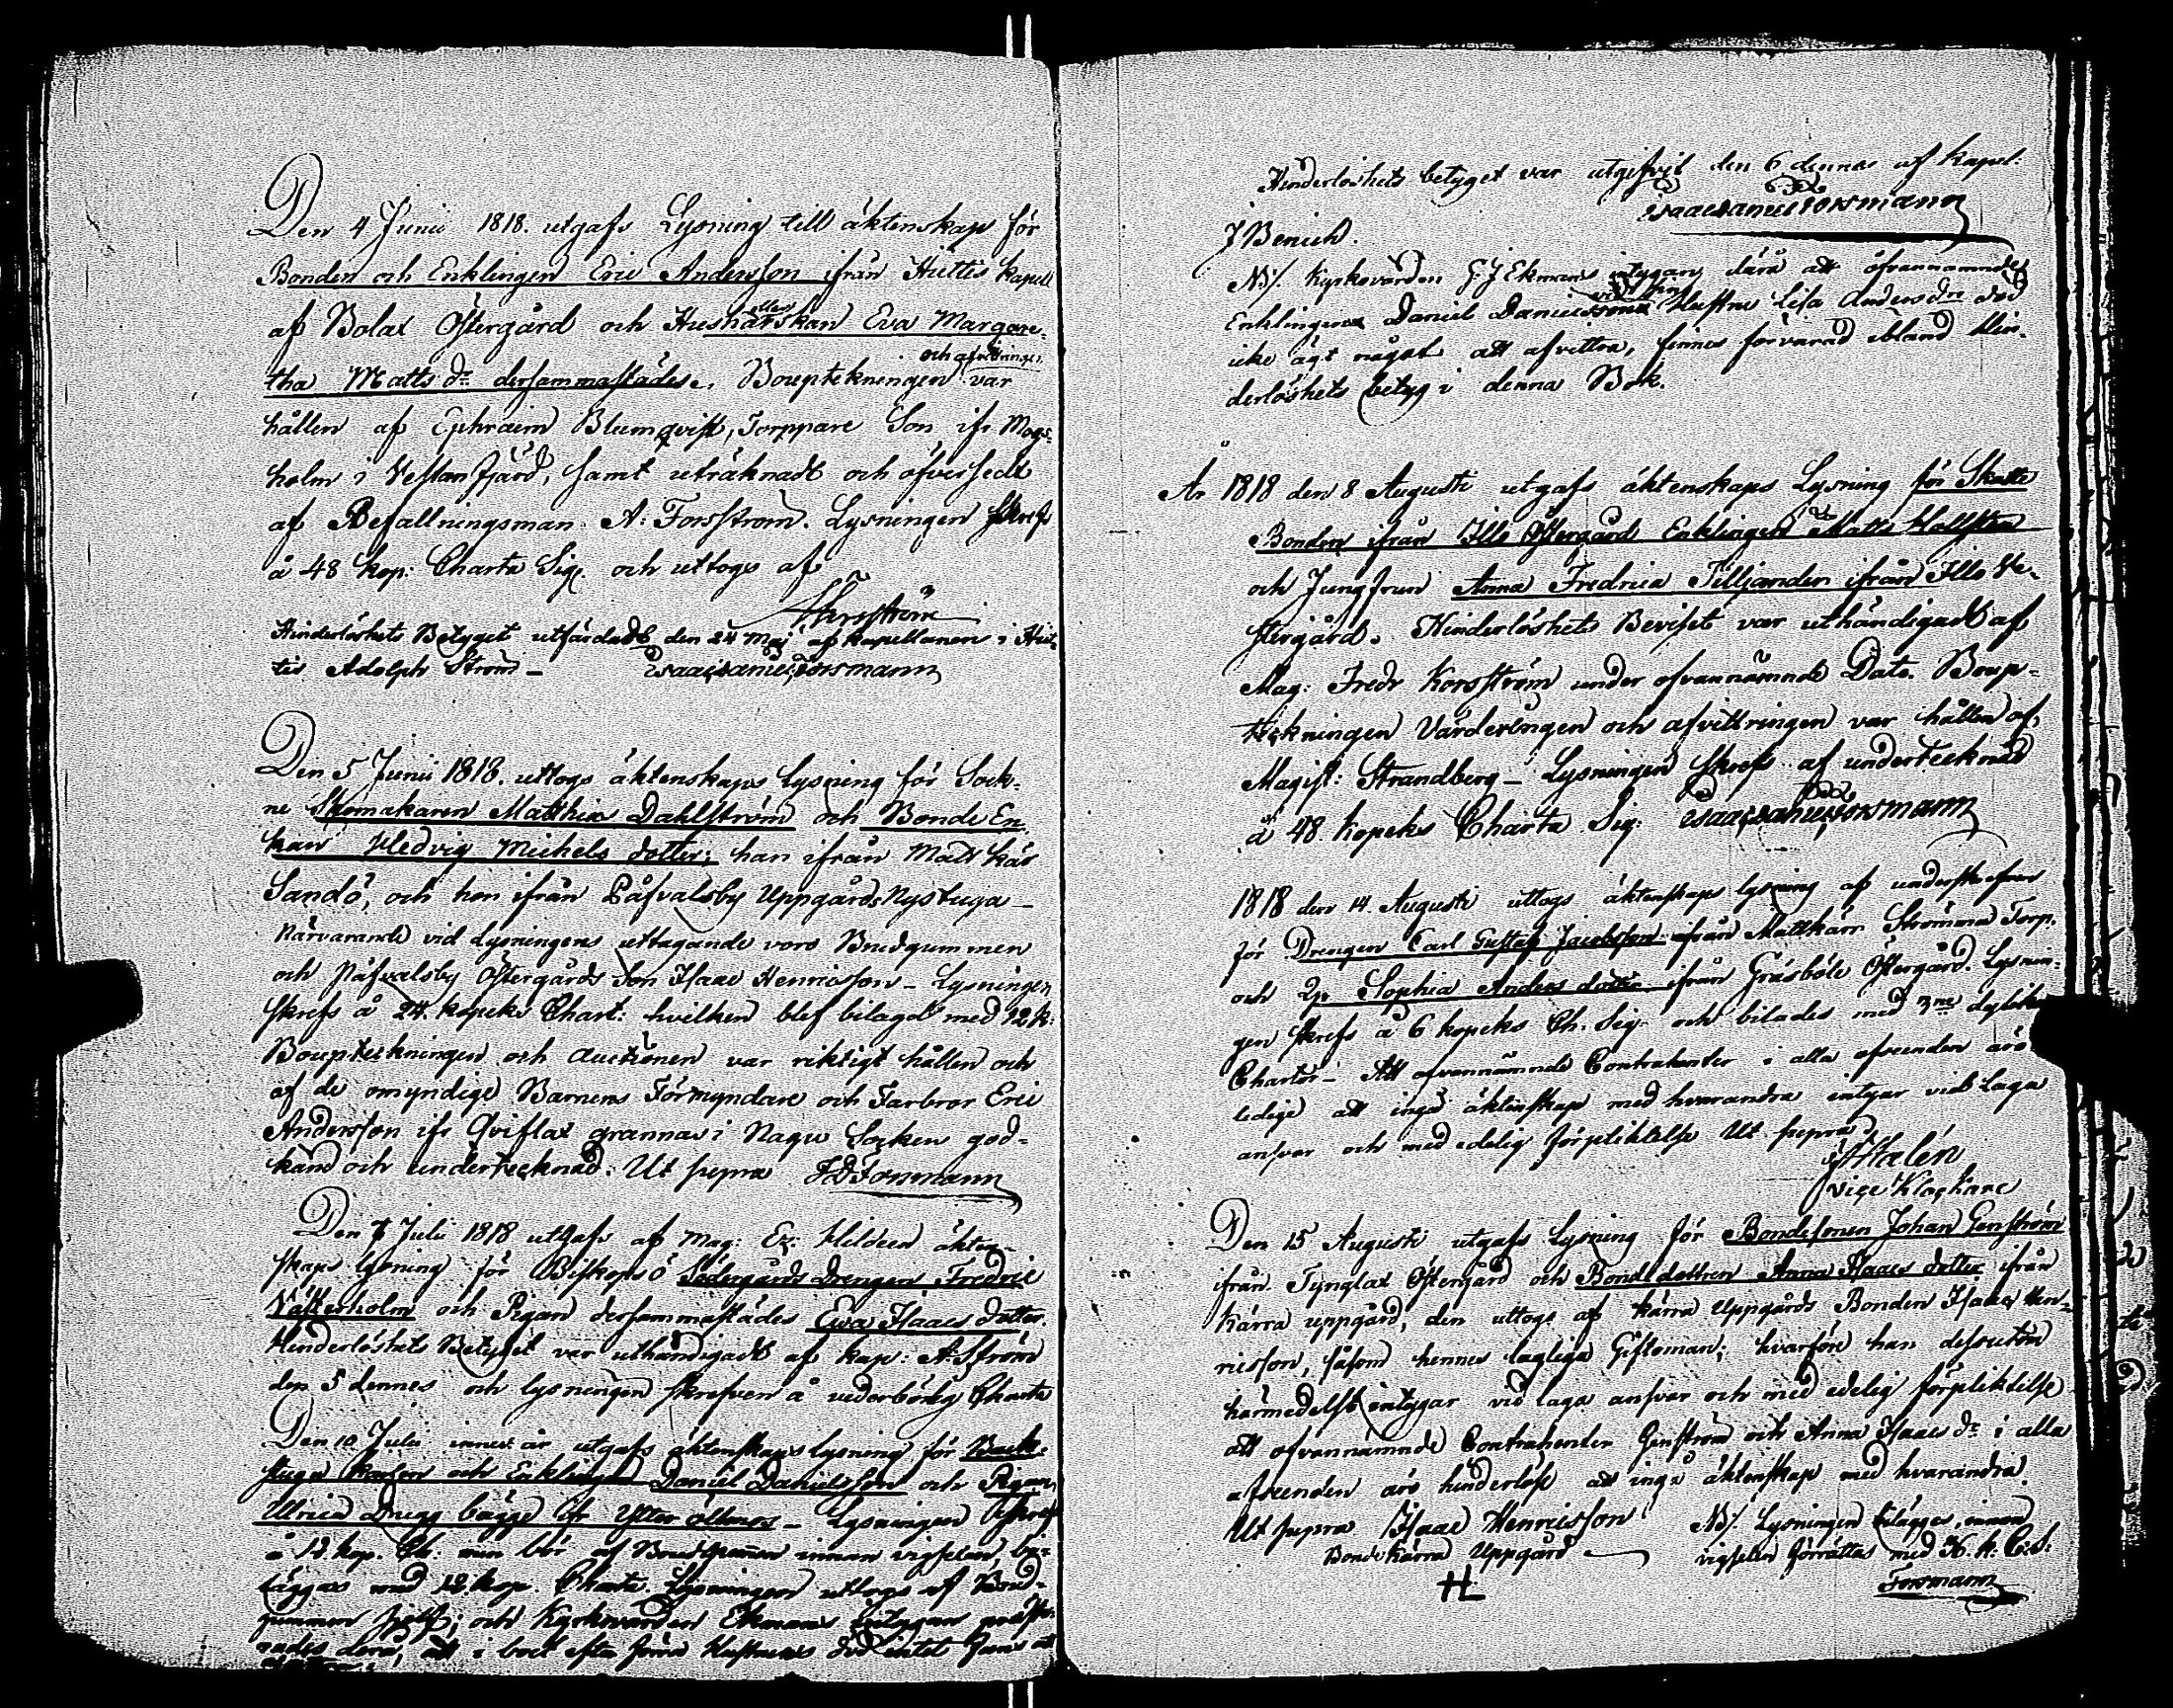 Den 4 Junii 1818. utgafs Lysning till äktenskap för
Bonden och Enklingen Eric Andersson ifrån Hiittis kapell
af Bolax Östergård och Hushållerskan Eva Margare-
tha Matts dr dersammastädes. Bouptekningen och afvittringen var
hållen af Ephraim Blumqvist, Torppare Son ifr Mogs-
holm i Vestanfjärd, samt uträknadt och öfversedt
af Befallningsman A: Forsström. Lysningen skrefs
å 48 kop: Charta Sig. och uttogs af
Hinderlöshets Betyget utfärdadt den 24 Maj af kapellanen i Hiit-
tis Adolph Ström – Isaac Daniel Forsmann
Den 5 Junii 1818. uttogs äktenskaps Lysning för Sock-
ne Skomakaren Matthias Dahlström och Bonde En-
kan Hedvig Michels dotter; han ifrån Mattkär
Sandö, och hon ifrån Påfvalsby Uppgårds Nystuga –
Närvarande vid Lysningens uttagande voro Brudgummen
och Påfvalsby Östergårds Son Isaac Henricsson – Lysningen
skrefs å 24. kopeks Chart: hvilken blef bilagd med 12 k:
Bouptekningen och Auctionen var riktigt hållen och
af de omyndige Barnens Förmyndare och Farbror Eric
Andersson ifr Qviflax grannas i Nagu Socken god-
känd och undertecknad. Ut supra I D Forsmann
Den 7 Julii 1818 utgafs af Mag: Ez: Hildeen äkten-
skaps lysning för Biskopsö Södergårds Drengen Fredric
Västerholm och Pigan dersammastädes Ewa Isaacs dotter.
Hinderlöshets Betyget var uthändigadt af kap: A: Ström
den 5 dennes och lysningen skrefven å vederbörlig Charta
Den 10 Julii innev. år utgafs äktenskaps lysning för Back-
stugu karlen och Enklingen Daniel Danielsson och Pigan
Ulrica Drugg bägge ifr Ytter ölmos – Lysningen skrefs
å 12. kop. Ch: men bör af Brudgummen innan vigseln be-
läggas med 12. kop. Charta. Lysningen uttogs af Brud-
gummen sjelf; och Kyrkovärden Ekmans intygan
derå, att i boet efter förra Hustruns död intet fans att
Hinderlöshets betyget var utgifvit den 6 dennes af kapel:
J Benich. Isaac Daniel Forsmann
NB/. Kyrkovärden G: J Ekmans intygan, därå att öfvannämnde
Enklingen Daniel Danielssons vid sin Hustru Lisa Andersdrs död
icke ägt något att afvittra, finnes förvarad ibland Hin-
derlöshets betyg i denna Bok.
År 1818 den 8 Augusti utgafs äktenskaps Lysning för Skatte
Bonden ifrån Illo Östergård Enklingen Matts Hallsten
och Jungfrun Anna Fredrica Tilljander ifrån Illo Ve-
stergård. Hinderlöshets Beviset var uthändigadt af
Mag: Fredr Korsström under ofvannämnde Dato. Boup-
tekningen Värderingen och afvittringen var hållen af
Magist: Strandberg – Lysningen skrefs af undertecknad
å 48. kopeks Charta Sig: Isaac Daniel Forsmann
1818 den 14. Augusti uttogs äktenskaps lysning af underskrefven
för Drengen Carl Gustaf Jacobsson ifrån Mattkärr Strömma Torp,
och Pig. Sophia Anders dotter ifrån Gräsböle Östergård. Lysnin-
gen skrefs å 6 kopeks Ch. Sig. och bilades med 3ne dylika
Chartor – Att ofvannämnde Contrahenter i alla afseenden äro
ledige att ingå äktenskap med hvarandra intygar vid laga
ansvar och med edelig förpliktelse Ut supra
Stalén
vice Klockare
Den 15 Augusti utgafs Lysning för Bondesonen Johan Genström
ifrån Tynglax Östergård och Bondedottren Anna Isaacs dotter ifrån
Kärra uppgård, den uttogs af Kärra Uppgårds Bonden Isaac Hen-
ricsson, såsom hennes lagliga Giftoman; hvarföre han dessutom
härmedelst intygar vid laga ansvar och med edelig förpliktelse
att ofvannämnde Contrahenter Genström och Anna Isaacs dr i alla
afseenden äro hinderlöse att ingå äktenskap med hvarandra.
Ut supra Isaac Henricsson NB/. Lysningen bilägges, innan
Bonde Kärra Uppgård – vigseln förrättas med 36. k: C: S:
H Forsmann